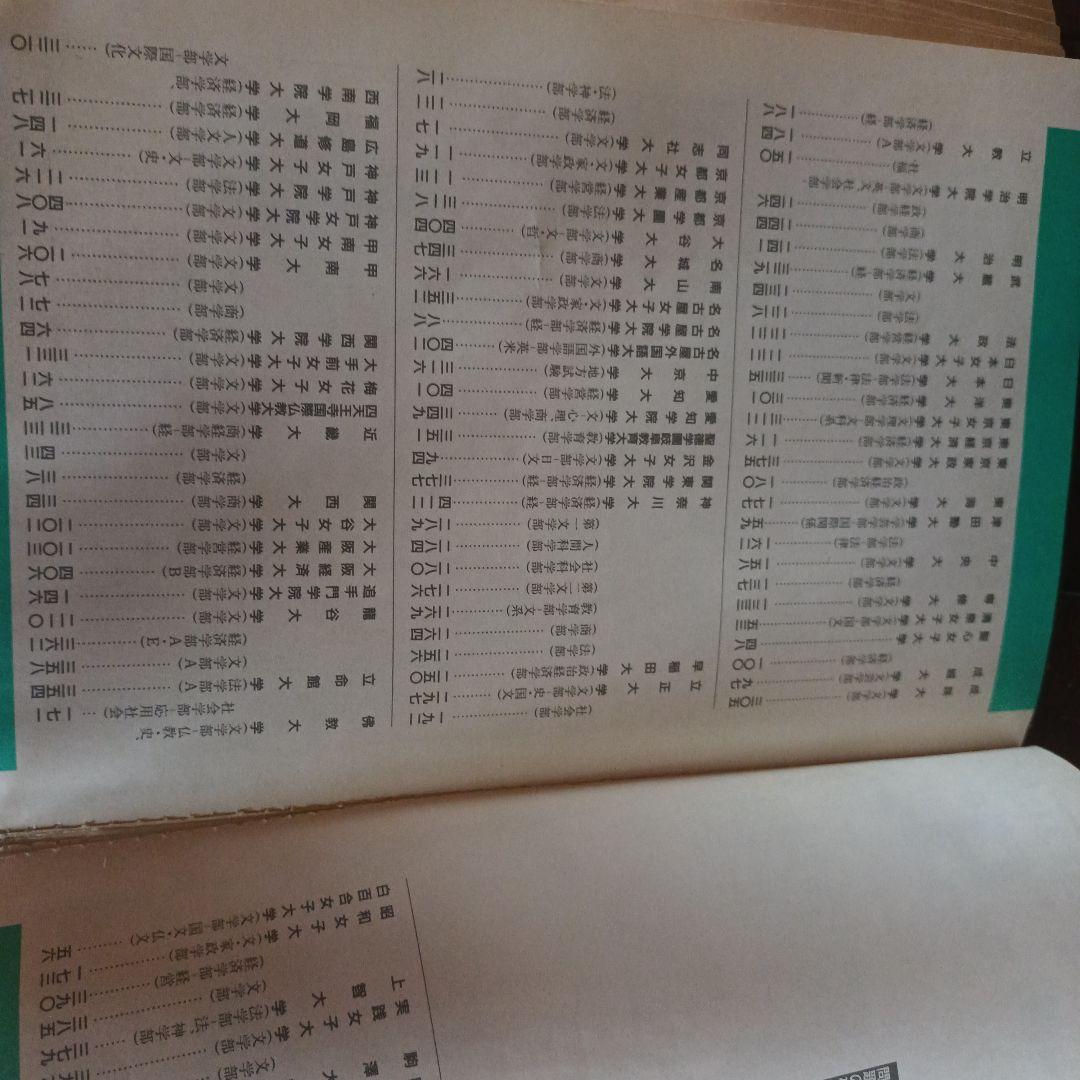 駒澤大
実践女子大学(文学部)
上智大学(法学部-法、神学部)……三八五
(文学部)……三九〇
(経済学部-経営)……一七三
昭和女子大学(文・家政学部)
白百合女子大学(文学部-国文・仏文)……五六
成蹊大学(文学部)……三〇五
成城大学(文芸学部)……九七
(経済学部)……一〇〇
聖心女子大学……四八
清泉女子大学(文学部-国文)……五三
専修大学(文学部)……一三三
(経済学部)……一三七
中央大学(文学部)……一五八
(法学部-法律)……一六二
津田塾大学(学芸学部-国際関係)……五九
東海大学(文学部)……一七七
(政治経済学部)……一八〇
東京家政大学(文学部)……三七五
東京経済大学(経済学部)……一一六
東京女子大学(文理学部-文科系)……三二二
東洋大学(経済学部)……三〇一
日本大学(法学部-法律・新聞)……三三五
日本女子大学(文学部)……一二二
法政大学(経営学部)……三三二
(法学部)……三二八
(文学部)……三三四
武蔵大学(経済学部-経)……三三九
明治大学(法学部)……二四一
(商学部)……二四四
(政経学部)……二四六
明治学院大学(文学部-英文、社会学部-社福)……一五〇
立教大学(文学部A)……一八四
(経済学部-経)……一八八
(社会学部)……一九二
立正大学(文学部-史・国文)……一九七
早稲田大学(政治経済学部)……二五〇
(法学部)……二五六
(商学部)……二六四
(教育学部-文系)……二六九
(第二文学部)……二七六
(社会科学部)……二八〇
(人間科学部)……二八四
(第一文学部)……二八九
神奈川大学(経済学部-経)……四二二
関東学院大学(経済学部-経)……三七七
金沢女子大学(文学部-日文)……九四
聖徳学園岐阜教育大学(教育学部)……三五一
愛知学院大学(文-心理・商学部)……三四九
愛知大学(経営学部)……四〇一
中京大学(地方試験)……三一六
名古屋外国語大学(外国語学部-英米)……四〇二
名古屋学院大学(経済学部-経)……八八
名古屋女子大学(文・家政学部)……三五二
南山大学(文学部)……一六六
名城大学(商学部)……三四七
大谷大学(文学部-文・哲)……四〇四
京都学園大学(法学部)……三二八
京都産業大学(経営学部)……一一三
京都女子大学(文・家政学部)……一一九
同志社大学(文学部)……一七
(経済学部)……二二
(法・神学部)……二八
佛教大学(文学部-仏教・史、社会学部-応用社会)……一七一
立命館大学(法学部A)……三五四
(文学部A)……三五八
(経済学部A・E)……三六二
龍谷大学(文学部)……二一〇
追手門学院大学(文学部)……一四六
大阪経済大学(経済学部B)……四〇六
大阪産業大学(経営学部)……一〇三
大谷女子大学(文学部)……二〇二
関西大学(商学部)……三四
(経済学部)……三八
(文学部)……四三
近畿大学(商経学部-経)……三三三
四天王寺国際仏教大学(文学部)……八五
梅花女子大学(文学部)……六二
大手前女子大学(文学部)……三三一
関西学院大学(経済学部)……六四
(商学部)……七二
(文学部)……七八
甲南大学(文学部)……一〇六
甲南女子大学(文学部)……九一
神戸女学院大学(文学部)……四〇八
神戸学院大学(法学部)……二一六
神戸女子大学(文学部-文・史)……六一
広島修道大学(人文学部)……一四八
福岡大学(経済学部)……三一七
西南学院大学(経済学部、文学部-国際文化)……三一〇